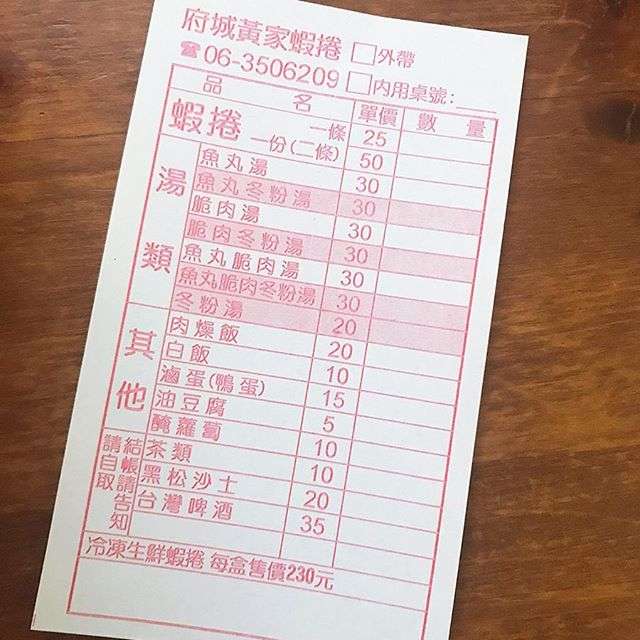 府城黃家蝦捲 □外帶
☎06-3506209 □內用桌號:___
品名 單價 數量
蝦捲 一條 25
一份(二條) 50
湯類
魚丸湯 30
魚丸冬粉湯 30
脆肉湯 30
脆肉冬粉湯 30
魚丸脆肉湯 30
魚丸脆肉冬粉湯 30
冬粉湯 20
其他
肉燥飯 20
白飯 10
滷蛋(鴨蛋) 15
油豆腐 5
醃蘿蔔 10
請自取 結帳請告知
茶類 10
黑松沙士 20
台灣啤酒 35
冷凍生鮮蝦捲 每盒售價230元